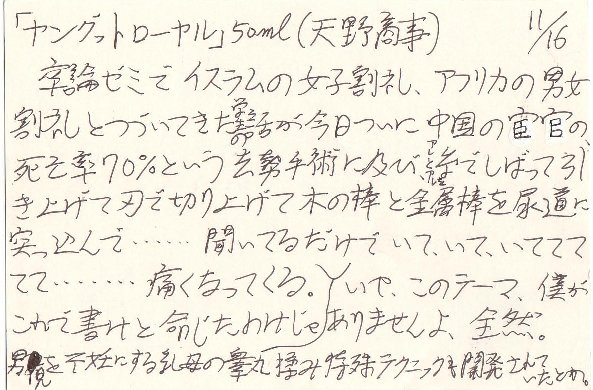 「ヤングットローヤル」50ml(天野商事) 11/16
卒論ゼミでイスラムの女子割礼、アフリカの男女
割礼とつづいてきた学生の話が今日ついに中国の宦官の、
死亡率70%という去勢手術に及び、糸でしばって引
き上げて刃で切り上げて木の棒と金属棒を尿道に
突っ込んで……聞いてるだけで いて、いて、いててて
てて………痛くなってくる。いや、このテーマ、僕が
これで書けと命じたわけじゃありませんよ、全然。
男児を不妊にする乳母の睾丸揉み特殊テクニックも開発されていたとか。